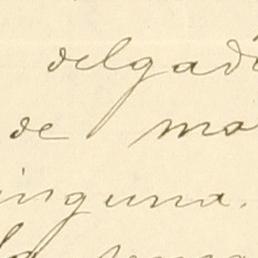 delgad
de ma
inguna.
la